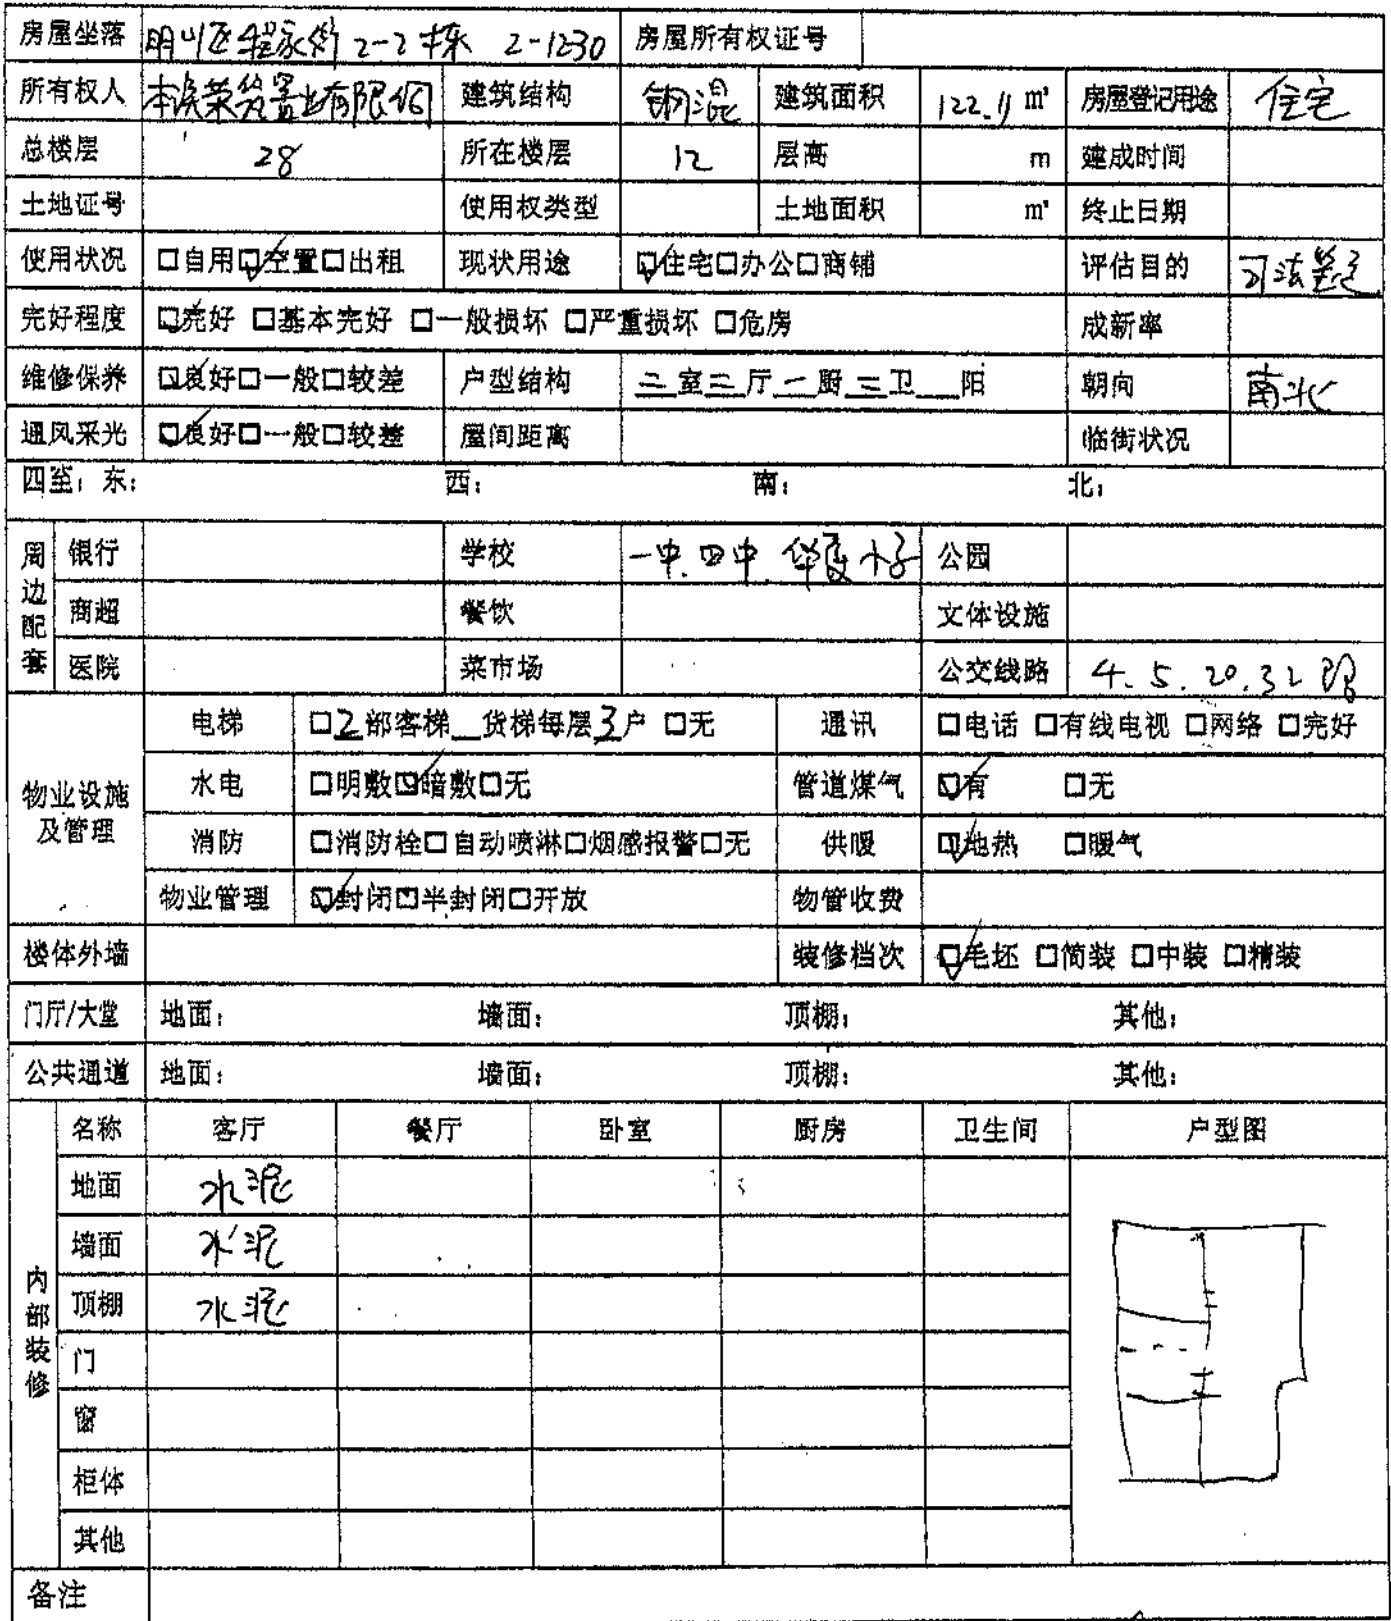 房屋坐落 明山区程家街2-2栋 2-1230 房屋所有权证号
所有权人 本溪荣筑置业有限公司 建筑结构 钢混 建筑面积 122.11 m² 房屋登记用途 住宅
总楼层 28 所在楼层 12 层高 m 建成时间
土地证号 使用权类型 土地面积 m² 终止日期
使用状况 □自用☑空置□出租 现状用途 ☑住宅□办公□商铺 评估目的 司法鉴定
完好程度 ☑完好 □基本完好 □一般损坏 □严重损坏 □危房 成新率
维修保养 ☑良好□一般□较差 户型结构 三室二厅一厨二卫__阳 朝向 南北
通风采光 ☑良好□一般□较差 屋间距离 临街状况
四至: 东: 西: 南: 北:
周边配套
银行 学校 一中.四中.华夏小学 公园
商超 餐饮 文体设施
医院 菜市场 公交线路 4.5.20.32路
物业设施及管理
电梯 □2部客梯__货梯每层3户 □无 通讯 □电话 □有线电视 □网络 □完好
水电 □明敷☑暗敷□无 管道煤气 ☑有 □无
消防 □消防栓□自动喷淋□烟感报警□无 供暖 ☑地热 □暖气
物业管理 ☑封闭□半封闭□开放 物管收费
楼体外墙 装修档次 ☑毛坯 □简装 □中装 □精装
门厅/大堂 地面: 墙面: 顶棚: 其他:
公共通道 地面: 墙面: 顶棚: 其他:
内部装修
名称 客厅 餐厅 卧室 厨房 卫生间 户型图
地面 水泥
墙面 水泥
顶棚 水泥
门
窗
柜体
其他
备注